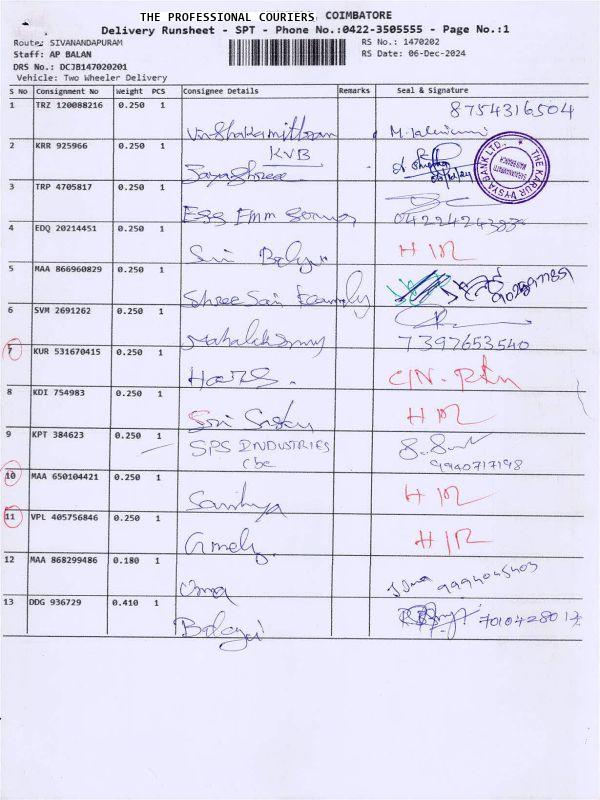 THE PROFESSIONAL COURIERS, COIMBATORE
Delivery Runsheet - SPT - Phone No.:0422-3505555 - Page No.:1
Route: SIVANANDAPURAM
RS No.: 1470202
Staff: AP BALAN
RS Date: 06-Dec-2024
DRS No.: DCJB147020201
Vehicle: Two Wheeler Delivery
S No Consignment No Weight PCS Consignee Details Remarks Seal & Signature
1 TRZ 120088216 0.250 1 8754316504
2 KRR 925966 0.250 1 KVB
THE KARUR VYSYA BANK LTD.
3 TRP 4705817 0.250 1
4 EDQ 20214451 0.250 1 Sri Balaji H/R
5 MAA 866960829 0.250 1 Shree Sai Family
6 SVM 2691262 0.250 1 7397653540
7 KUR 531670415 0.250 1 C/N. Rtn
8 KDI 754983 0.250 1 H/R
9 KPT 384623 0.250 1 SPS INDUSTRIES
cbe 9940717198
10 MAA 650104421 0.250 1 H/R
11 VPL 405756846 0.250 1 H/R
12 MAA 868299486 0.180 1 Uma 9994045403
13 DDG 936729 0.410 1 Balaji